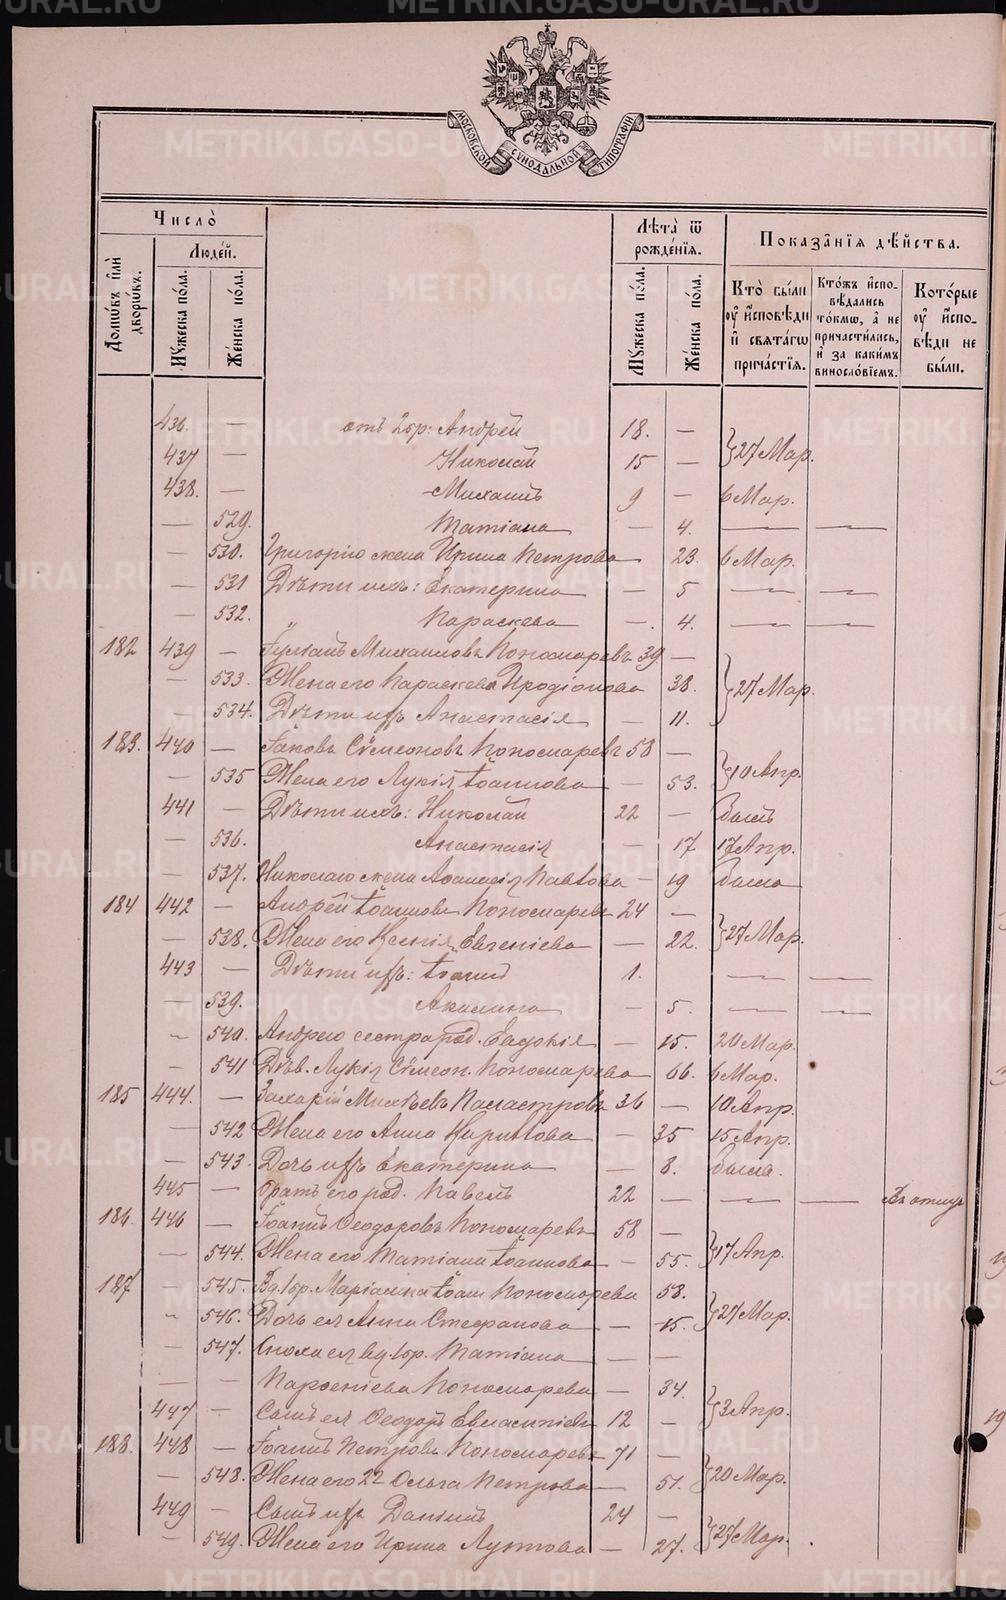 METRIKI.GASO-URAL.RU
МОСКОВСКОЙ СѴНОДАЛЬНОЙ ТИПОГРАФІИ
Число̀
Людей.
Домѡвъ и҆лѝ дворѡвъ.
Мꙋжеска по́ла.
Же́нска по́ла.
Лѣта̀ ѿ рожде́нїѧ.
Мꙋжеска по́ла.
Же́нска по́ла.
Показа̑нїѧ дѣ́йства.
Кто̀ бы́ли ᲂу҆ и҆сповѣди и҆ свѧта́гѡ прича́стїѧ.
Кто́жъ и҆спо-вѣдались то́кмѡ, а҆ не причасти́лись, и҆ за каки́мъ винословїемъ.
Кото́рые ᲂу҆ и҆спо-вѣди не бы́ли.
436. — отъ 2 бр: Андрей 18. — } 27 Мар.
437 — Николай 15 —
438. — Михаилъ 9 — 6 Мар.
— 529. Татіана — 4. — —
— 530. Григорію жена Ирина Петрова — 23. 6 Мар.
— 531 Дѣти ихъ: Екатерина — 5 — —
— 532. Параскева —. 4. — —
182 439 — Михаиловъ Пономаревъ 39 —
— 533. Жена его Параскева Иродіонова 38. } 27 Мар.
— 534. Дѣти ихъ Анастасія — 11.
183. 440 — Іаковъ Сѵмеоновъ Пономаревъ 58 —
— 535 Жена его Лукія Іоаннова — 53. } 10 Апр.
441 — Дѣти ихъ: Николай 22 — былъ
— 536. Анастасія — 17 17 Апр.
— 537. Николаю жена Аѳанасія Павлова — 19 была
184 442 — Андрей Іоанновъ Пономаревъ 24 —
— 538. Жена его Ксенія Евгеніева — 22. } 27 Мар.
443 — Дѣти ихъ: Іоаннъ 1. — —
— 539. Акилина — 5. — —
— 540. Андрею сестра род. Евдокія — 15. 20 Мар.
— 541 Дѣв. Лукія Сѵмеон. Пономарева — 66. 6 Мар.
185 444. — Захарій Михѣевъ Паластровъ 36 — 10 Апр.
— 542 Жена его Анна Кирилова — 35 15 Апр.
— 543. Дочь ихъ Екатерина — 8. была.
445 — Братъ его род. Павелъ 22 — — — Въ отлуч
186. 446 — Іоаннъ Ѳеодоровъ Пономаревъ 58 —
— 544. Жена его Татіана Іоаннова — 55. } 17 Апр.
187 — 545. Вд. 1 бр. Маріамна Іоан Пономарева 58.
— 546. Дочь ея Анна Стефанова — 15. } 27 Мар.
— 547. Сноха ея вд. 1 бр. Татіана — —
— — Парѳеніева Пономарева — 34.
447 — Сынъ ея Ѳеодоръ Евлампіевъ 12 — } 3 Апр.
188. 448 — Іоаннъ Петровъ Пономаревъ 71 —
— 548. Жена его 2 2 Ольга Петрова — 51. } 20 Мар.
449 — Сынъ ихъ Даніилъ 24 —
— 549. Жена его Ирина — 27. } 27 Мар.